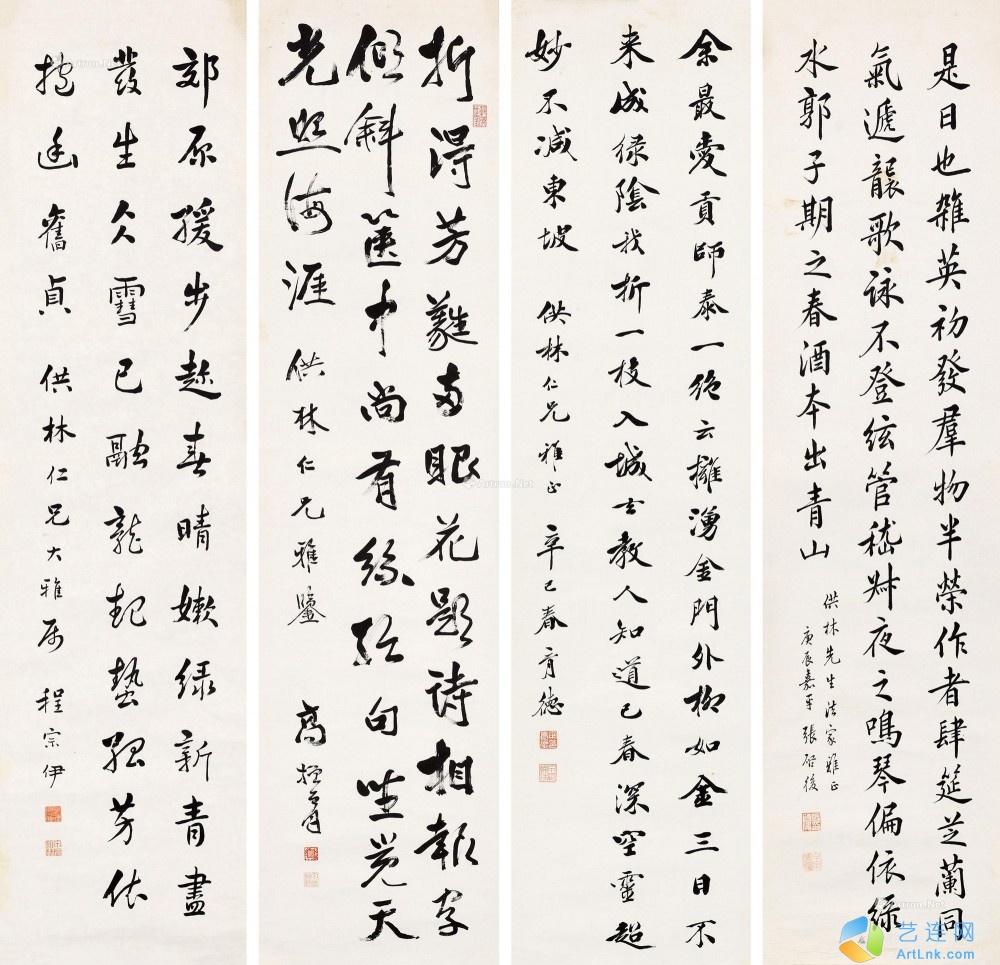 是日也雜英初發羣物半榮作者肆筵芝蘭同
氣遞襲歌詠不登絃管嵇叔夜之鳴琴偏依綠
水郭子期之春酒本出青山
供林先生法家雅正
庚辰嘉平張啟後
余最愛貢師泰一絕云擁湧金門外柳如金三日不
来成緑陰我折一枝入城去教人知道已春深空靈超
妙不減東坡 供林仁兄雅正 辛巳春育德
折得芳蕤兩眼花題詩相報字
傾斜篋中尚有絲綸句坐覺天
光照海涯 供林仁兄雅鑒 高振霄
郊原緩步趁春晴嫩綠新青盡
發生久雪已融龍起蟄孤芳依
抱幽舊貞 供林仁兄大雅属 程宗伊
艺连网
ArtLnk.com